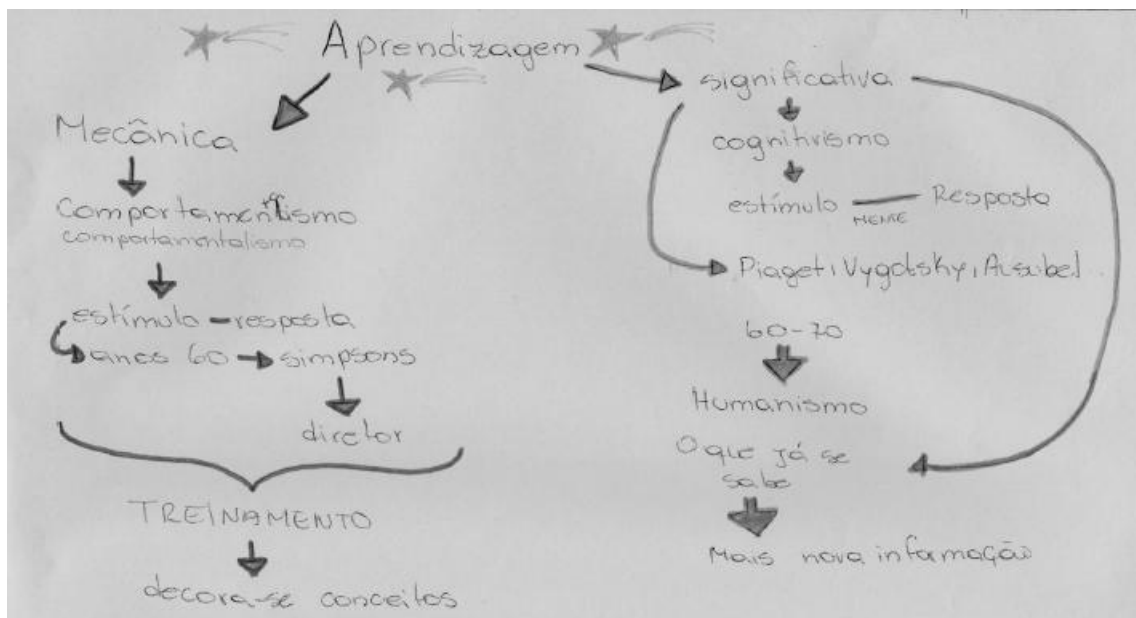 Aprendizagem
Mecânica
Comportamentismo
comportamentalismo
estímulo - resposta
anos 60 → simpsons
diretor
TREINAMENTO
decora-se conceitos
significativa
cognitivismo
estímulo — Resposta
Piaget, Vygotsky, Ausubel
60-70
Humanismo
O que já se
sabe
Mais nova informação